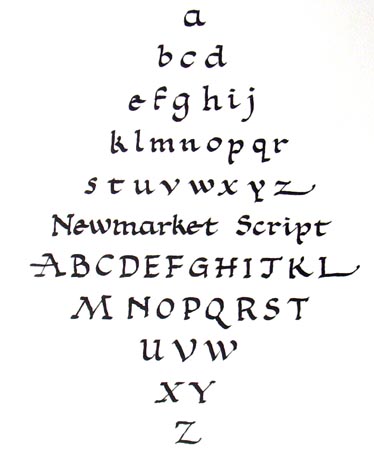 a
b c d
e f g h i j
k l m n o p q r
s t u v w x y z
Newmarket Script
A B C D E F G H I J K L
M N O P Q R S T
U V W
X Y
Z